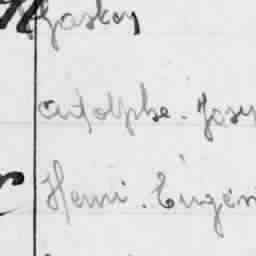 Gaston
Adolphe. Jose
Henri. Eugèn